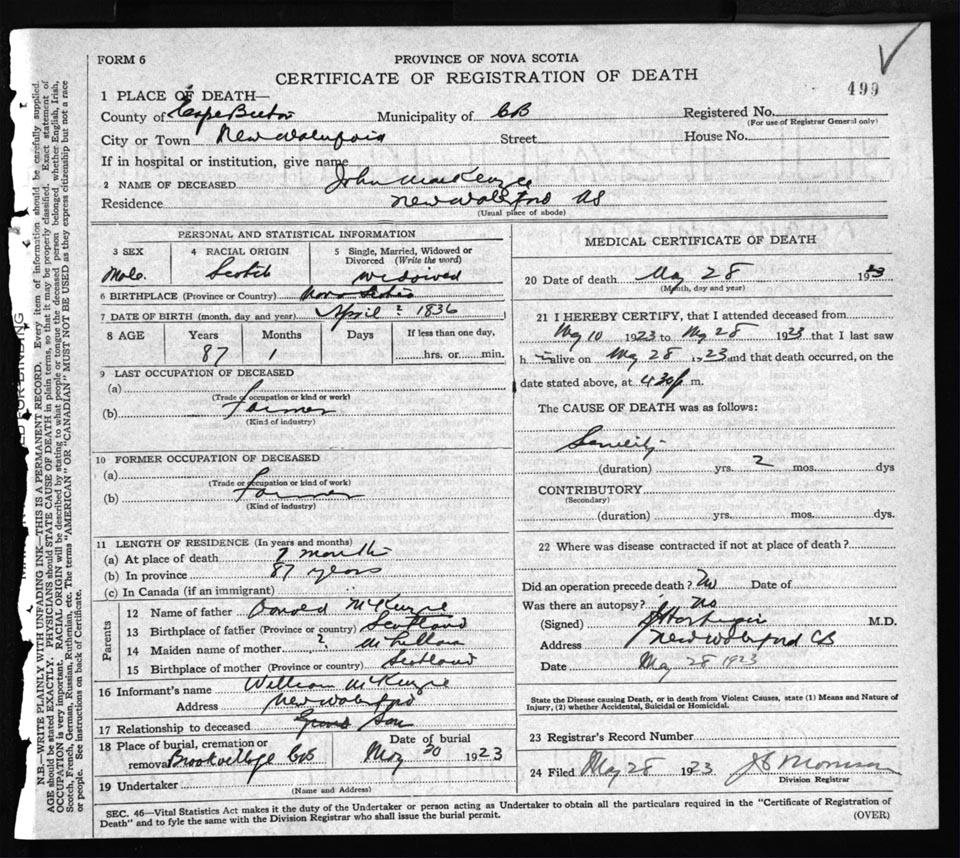 FORM 6
PROVINCE OF NOVA SCOTIA
CERTIFICATE OF REGISTRATION OF DEATH
499
1 PLACE OF DEATH—
County of Cape Breton Municipality of CB Registered No.
(For use of Registrar General only)
City or Town New Waterford Street House No.
If in hospital or institution, give name
2 NAME OF DECEASED John MacKenzie
Residence New Waterford NS
(Usual place of abode)
PERSONAL AND STATISTICAL INFORMATION
3 SEX 4 RACIAL ORIGIN 5 Single, Married, Widowed or
Divorced (Write the word)
Male Scotch Widowed
6 BIRTHPLACE (Province or Country) Nova Scotia
7 DATE OF BIRTH (month, day and year) April ? 1836
8 AGE Years Months Days If less than one day,
87 1 hrs. or min.
9 LAST OCCUPATION OF DECEASED
(a)
(Trade or occupation or kind or work)
(b) Farmer
(Kind of industry)
10 FORMER OCCUPATION OF DECEASED
(a)
(Trade or occupation or kind of work)
(b) Farmer
(Kind of industry)
11 LENGTH OF RESIDENCE (In years and months)
(a) At place of death months
(b) In province 87 years
(c) In Canada (if an immigrant)
Parents
12 Name of father Donald McKenzie
13 Birthplace of father (Province or country) Scotland
14 Maiden name of mother ?
15 Birthplace of mother (Province or country) Scotland
16 Informant's name William McKenzie
Address New Waterford
17 Relationship to deceased Grand Son
18 Place of burial, cremation or Date of burial
removal Brook Village CB May 30 1923
19 Undertaker
(Name and Address)
MEDICAL CERTIFICATE OF DEATH
20 Date of death May 28 1923
(Month, day and year)
21 I HEREBY CERTIFY, that I attended deceased from
May 10 1923 to May 28 1923 that I last saw
h alive on May 28 1923 and that death occurred, on the
date stated above, at 4.30 p m.
The CAUSE OF DEATH was as follows:
Senility
(duration) yrs. 2 mos. dys
CONTRIBUTORY
(Secondary)
(duration) yrs. mos. dys.
22 Where was disease contracted if not at place of death?
Did an operation precede death? No Date of
Was there an autopsy? No
(Signed) M.D.
Address New Waterford CB
Date May 28 1923
State the Disease causing Death, or in death from Violent Causes, state (1) Means and Nature of
Injury, (2) whether Accidental, Suicidal or Homicidal.
23 Registrar's Record Number
24 Filed May 28 1923 J Morrison
Division Registrar
SEC. 46—Vital Statistics Act makes it the duty of the Undertaker or person acting as Undertaker to obtain all the particulars required in the "Certificate of Registration of
Death" and to fyle the same with the Division Registrar who shall issue the burial permit.
(OVER)
N.B.—WRITE PLAINLY WITH UNFADING INK—THIS IS A PERMANENT RECORD. Every item of information should be carefully supplied.
AGE should be stated EXACTLY. PHYSICIANS should STATE CAUSE OF DEATH in plain terms, so that it may be properly classified. Exact statement of
OCCUPATION is very important. RACIAL ORIGIN will be described by stating to what people or tongue the deceased person belonged, whether English, Irish,
Scotch, French, German, Russian, Ruthenian, etc. The terms "AMERICAN" or "CANADIAN" MUST NOT BE USED as they express citizenship but not a race
or people. See instructions on back of Certificate.
FOR BINDING